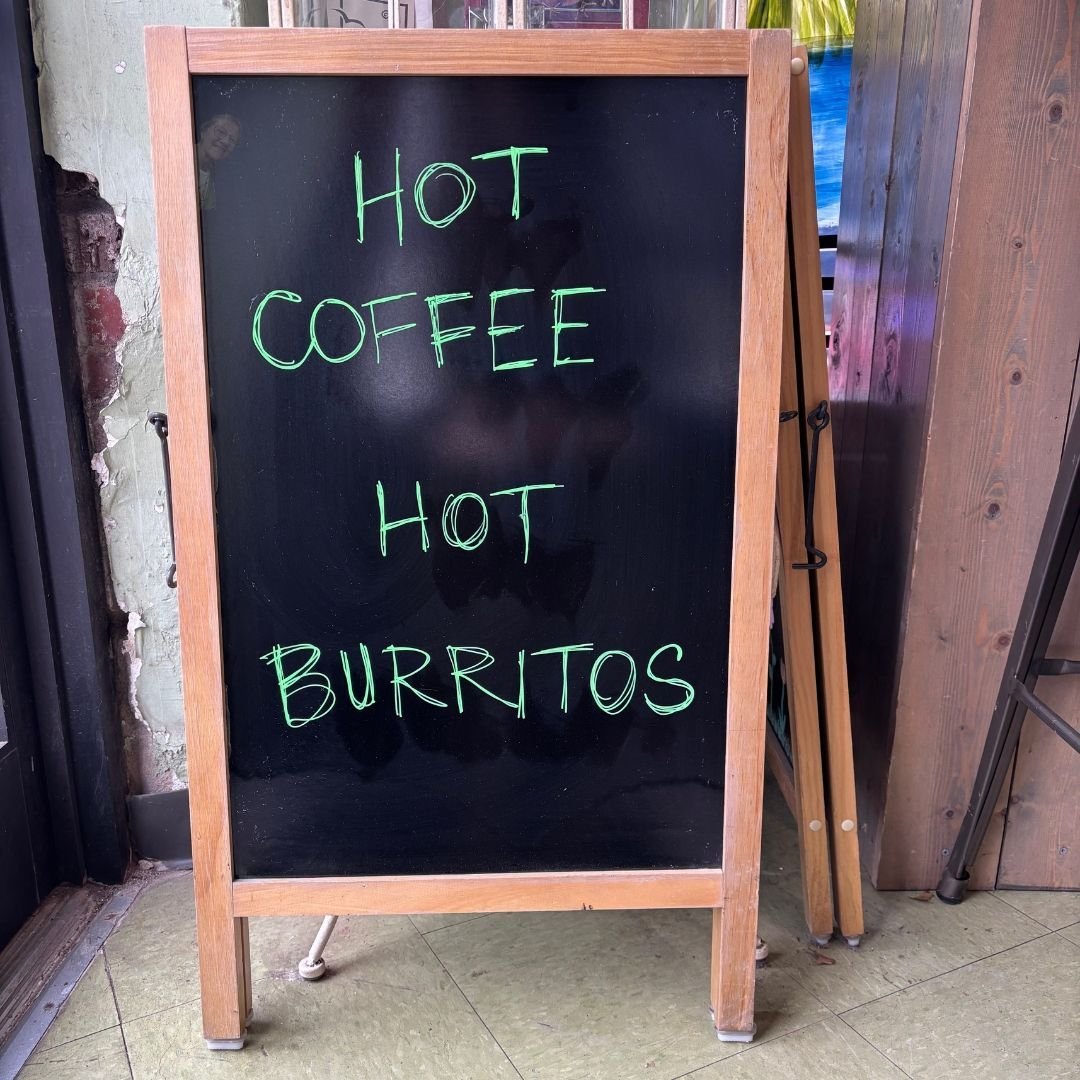 HOT
COFFEE
HOT
BURRITOS